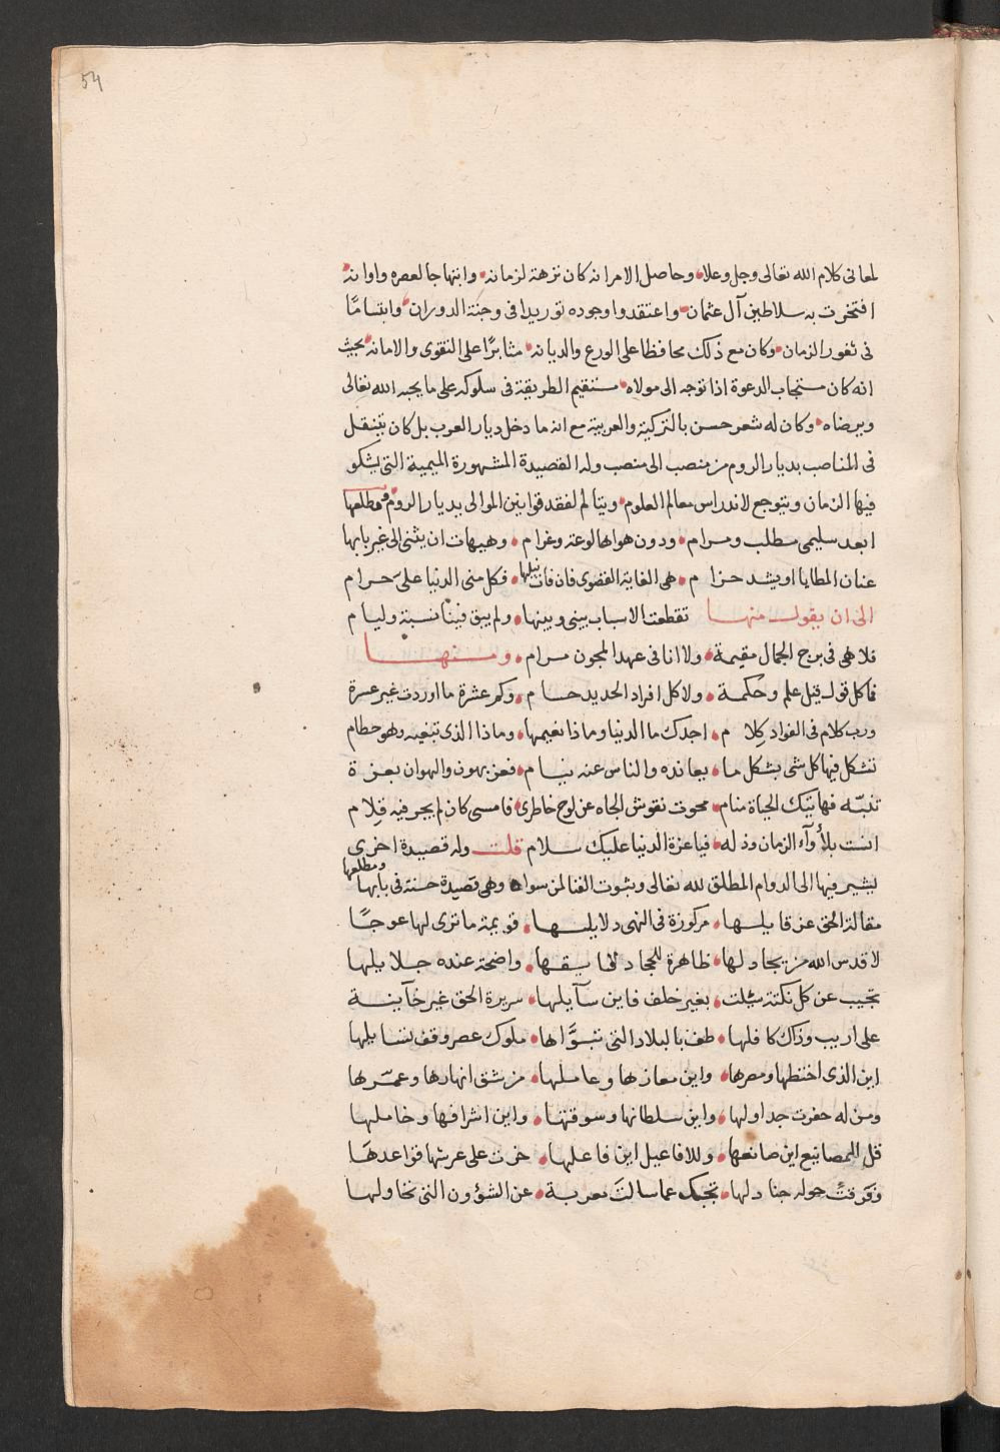 54
لمعانى كلام الله تعالى وجل وعلا وحاصل الامر انه كان نزهة لزمانه وابتهاجا لعصره واوانه
افتخرت به سلاطين آل عثمان واعتقدوا وجوده توريدا فى وجنة الدوران وابتسامًا
فى ثغور الزمان وكان مع ذلك محافظا على الورع والديانه مثابرًا على التقوى والامانه بحيث
انه كان مستجاب الدعوة اذا توجه الى مولاه مستقيم الطريقة فى سلوكه على ما يحبه الله تعالى
ويرضاه وكان له شعر حسن بالتركية والعربية مع انه ما دخل ديار العرب بل كان يتنقل
فى المناصب بديار الروم من منصب الى منصب وله القصيدة المشهورة الميمية التى يشكو
فيها الزمان ويتوجع لاندراس معالم العلوم ويتالم لفقد قوانين الموالى بديار الروم ومطلعها
ابعد سليمى مطلب ومرام ودون هواها لوعة وغرام وهيهات ان يثنى الى غير بابها
عنان المطايا او يشد حزام هى الغاية القصوى فان فات نيلها فكل منى الدنيا على حرام
الى ان يقول منها تقطعت الاسباب بينى وبينها ولم يبق فينا نسبة وليام
فلا هى فى برج الجمال مقيمة ولا انا فى عهد المجون مرام ومنها
فما كل قول قيل علم وحكمة ولا كل افراد الحديد حسام وكم عشرة ما اوردت غير عسرة
ورب كلام فى الفواد كلام اجدك ما الدنيا وماذا نعيمها وماذا الذى تبغيه وهو حطام
تشكل فيها كل شى بشكل ما يعانده والناس عنه نيام فعز بهون والهوان بعزة
تنبّه فهاتيك الحياة منام محوت نقوش الجاه عن لوح خاطرى فامسى كان لم يجر فيه قلام
انست بلأوآء الزمان وذله فيا عزة الدنيا عليك سلام قلت وله قصيدة اخرى
يشير فيها الى الدوام المطلق لله تعالى وثبوت الفنا لمن سواه وهى قصيدة حسنة فى بابها ومطلعها
مقالة الحق عز قايلها مركوزة فى النهى دلايلها قويمة ما ترى لها عوجًا
لا قدس الله من يجادلها ظاهرة للحجا دقايقها واضحة عنده جلايلها
تجيب عن كل نكتة سئلت بغير خلف فاين سآيلها سريرة الحق غير خآينة
على اريب وذاك كافلها طف بالبلاد التى تبوَّاها ملوك عصر وقف تسايلها
اين الذى اختطها ومصرها واين معارها وعاملها من شق انهارها وعمّرها
ومن له حفرت جداولها واين سلطانها وسوقتها واين اشرافها وخاملها
قل للمصانيع اين صانعها وللافاعيل اين فاعلها خرت على عرشها قواعدها
وفرقت حوله جنادلها تجبك عما سالت معربة عن الشؤون التى تحاولها